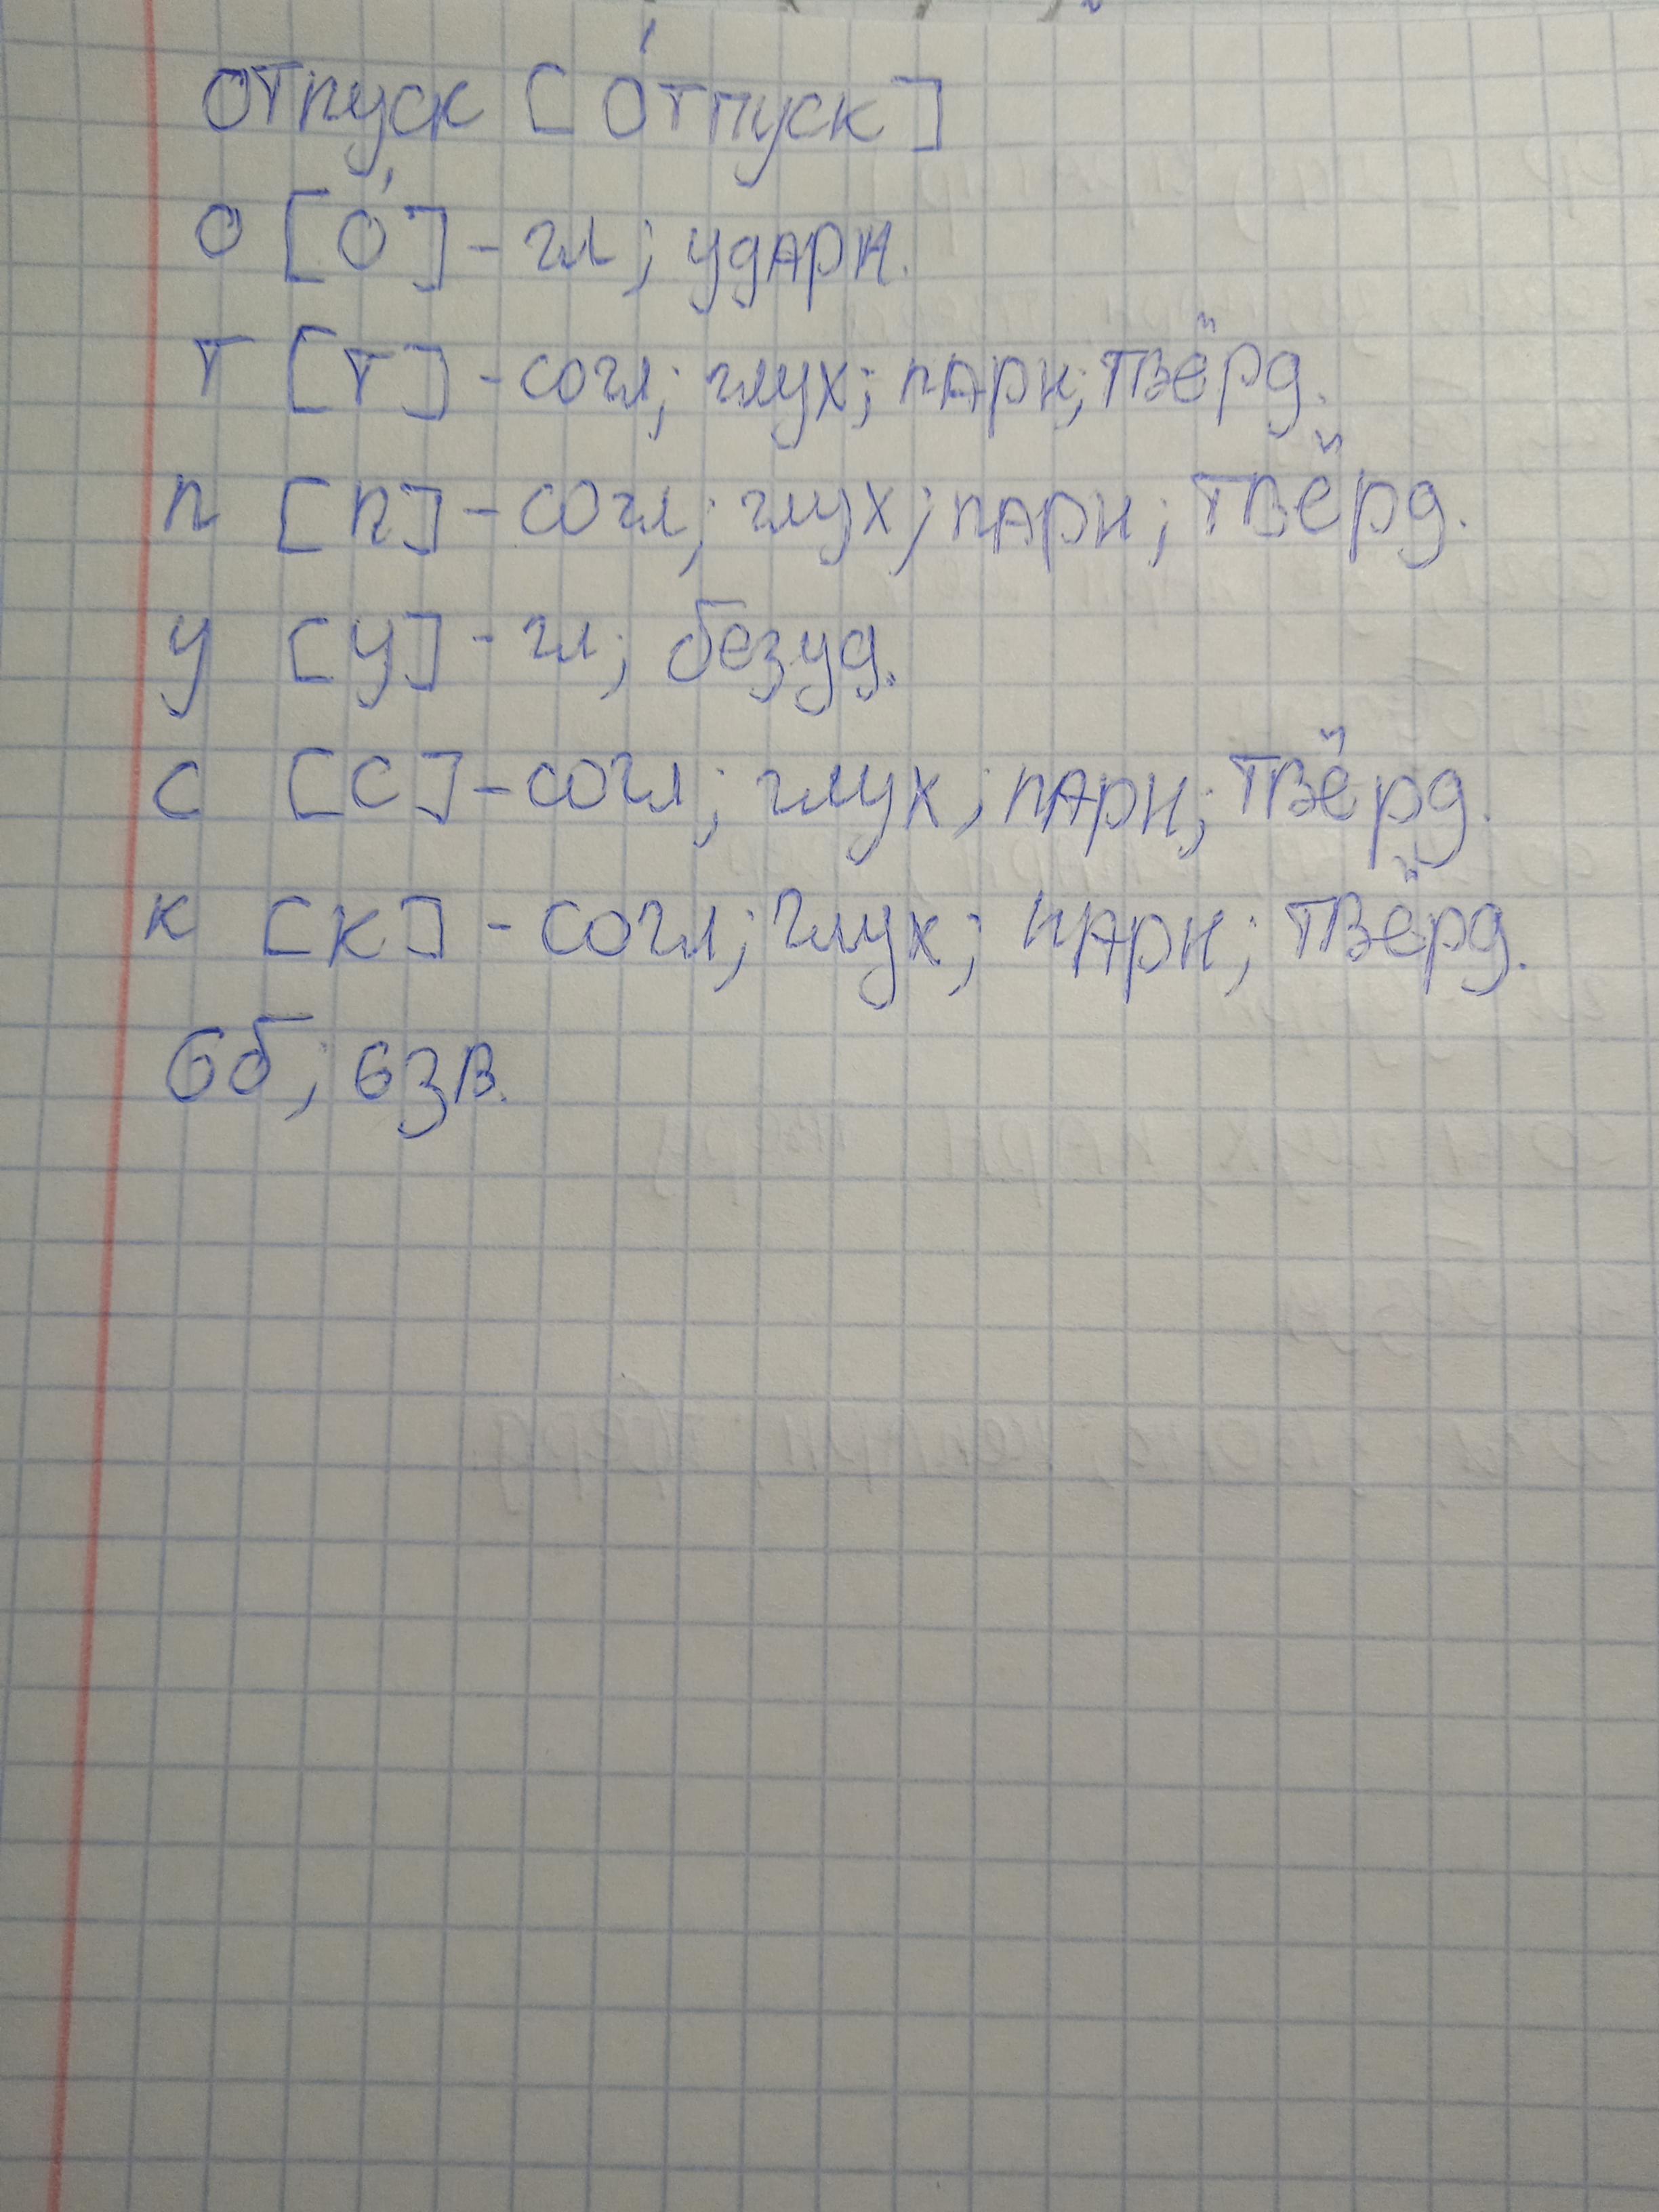 отпуск [о́тпуск]
о [о́] - гл; ударн.
т [т] - согл; глух; парн; твёрд.
п [п] - согл; глух; парн; твёрд.
у [у] - гл; безуд.
с [с] - согл; глух; парн; твёрд.
к [к] - согл; глух; парн; твёрд.
6б; 6зв.